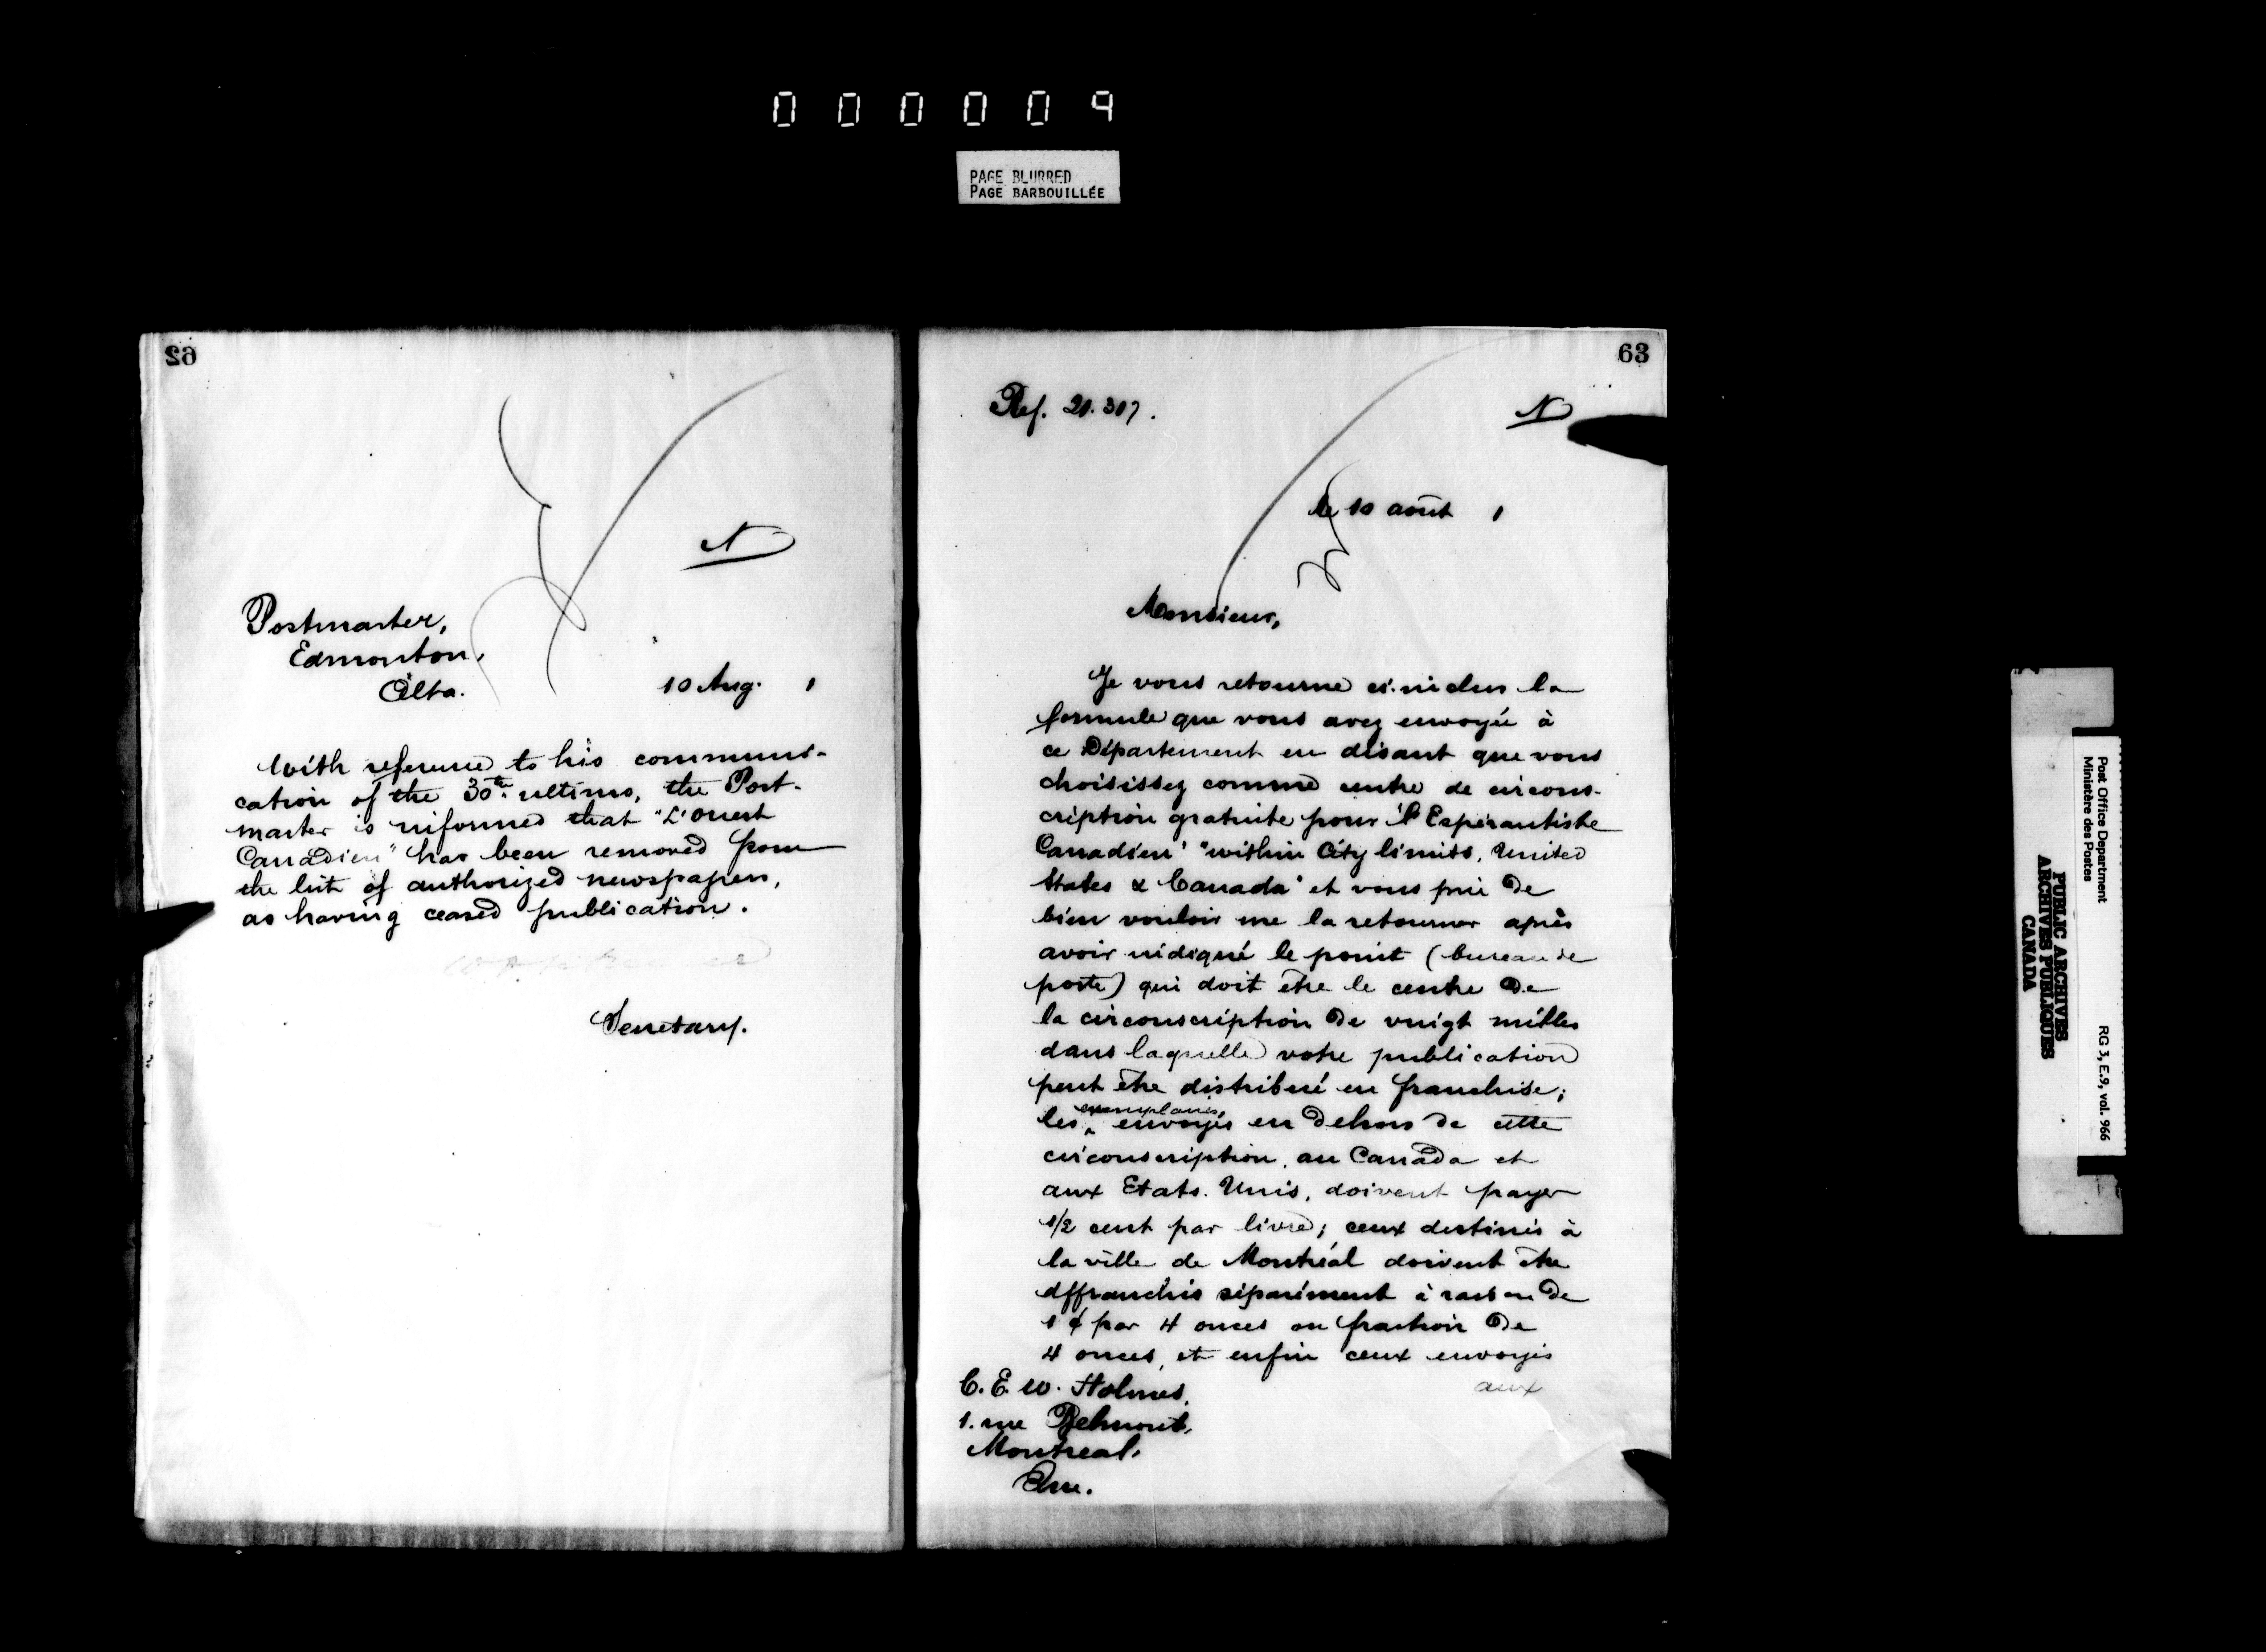 000009
PAGE BLURRED
PAGE BARBOUILLÉE
62
N
Postmaster,
Edmonton,
Alta.
10 Aug. 1
With reference to his communi-
cation of the 30th ultimo, the Post-
master is informed that "L'Ouest
Canadien" has been removed from
the list of authorized newspapers,
as having ceased publication.
Secretary.
63
Ref. 21.317.
N
le 10 août 1
Monsieur,
Je vous retourne ci-inclus la
formule que vous avez envoyée à
ce Département en disant que vous
choisissez comme centre de circons-
cription gratuite pour "l'Espérantiste
Canadien" "within City limits, United
States & Canada" et vous prie de
bien vouloir me la retourner après
avoir indiqué le point (bureau de
poste) qui doit être le centre de
la circonscription de vingt milles
dans laquelle votre publication
peut être distribué en franchise;
les exemplaires envoyés en dehors de cette
circonscription, au Canada et
aux Etats-Unis, doivent payer
1/2 cent par livre; ceux destinés à
la ville de Montréal doivent être
affranchis séparément à raison de
1 ¢ par 4 onces ou fraction de
4 onces, et enfin ceux envoyés
aux
C. E. W. Holmes,
1. rue Belmont,
Montreal,
Que.
Post Office Department
Ministère des Postes
RG 3, E.9, vol. 966
PUBLIC ARCHIVES
ARCHIVES PUBLIQUES
CANADA